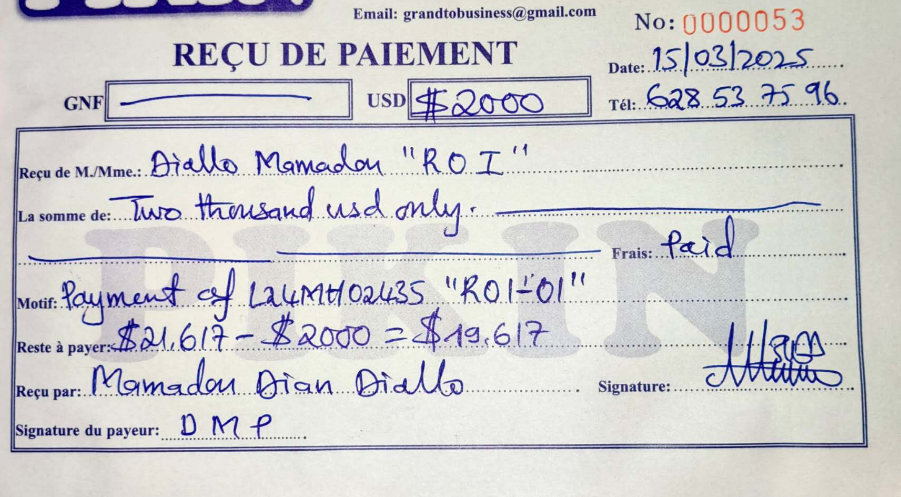 Email: grandtobusiness@gmail.com
No: 0000053
REÇU DE PAIEMENT
Date: 15/03/2025
GNF
USD $2000
Tél: 628 53 75 96
Reçu de M./Mme.: Diallo Mamadou "ROI"
La somme de: Two thousand usd only.
Frais: Paid
Motif: Payment of L24MH02435 "ROI-01"
Reste à payer: $21.617 - $2000 = $19.617
Reçu par: Mamadou Dian Diallo
Signature:
Signature du payeur: DMP
PIKIN